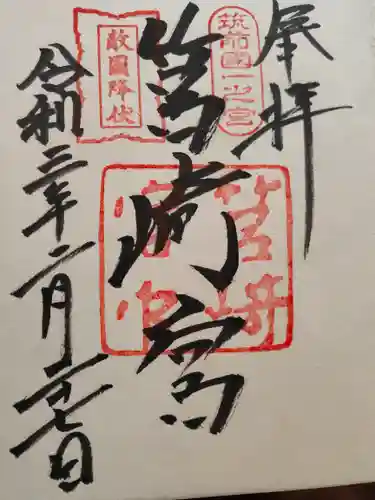 奉拝
筑前國一之宮
筥崎宮
敵國降伏
筥崎
宮印
令和三年二月十七日